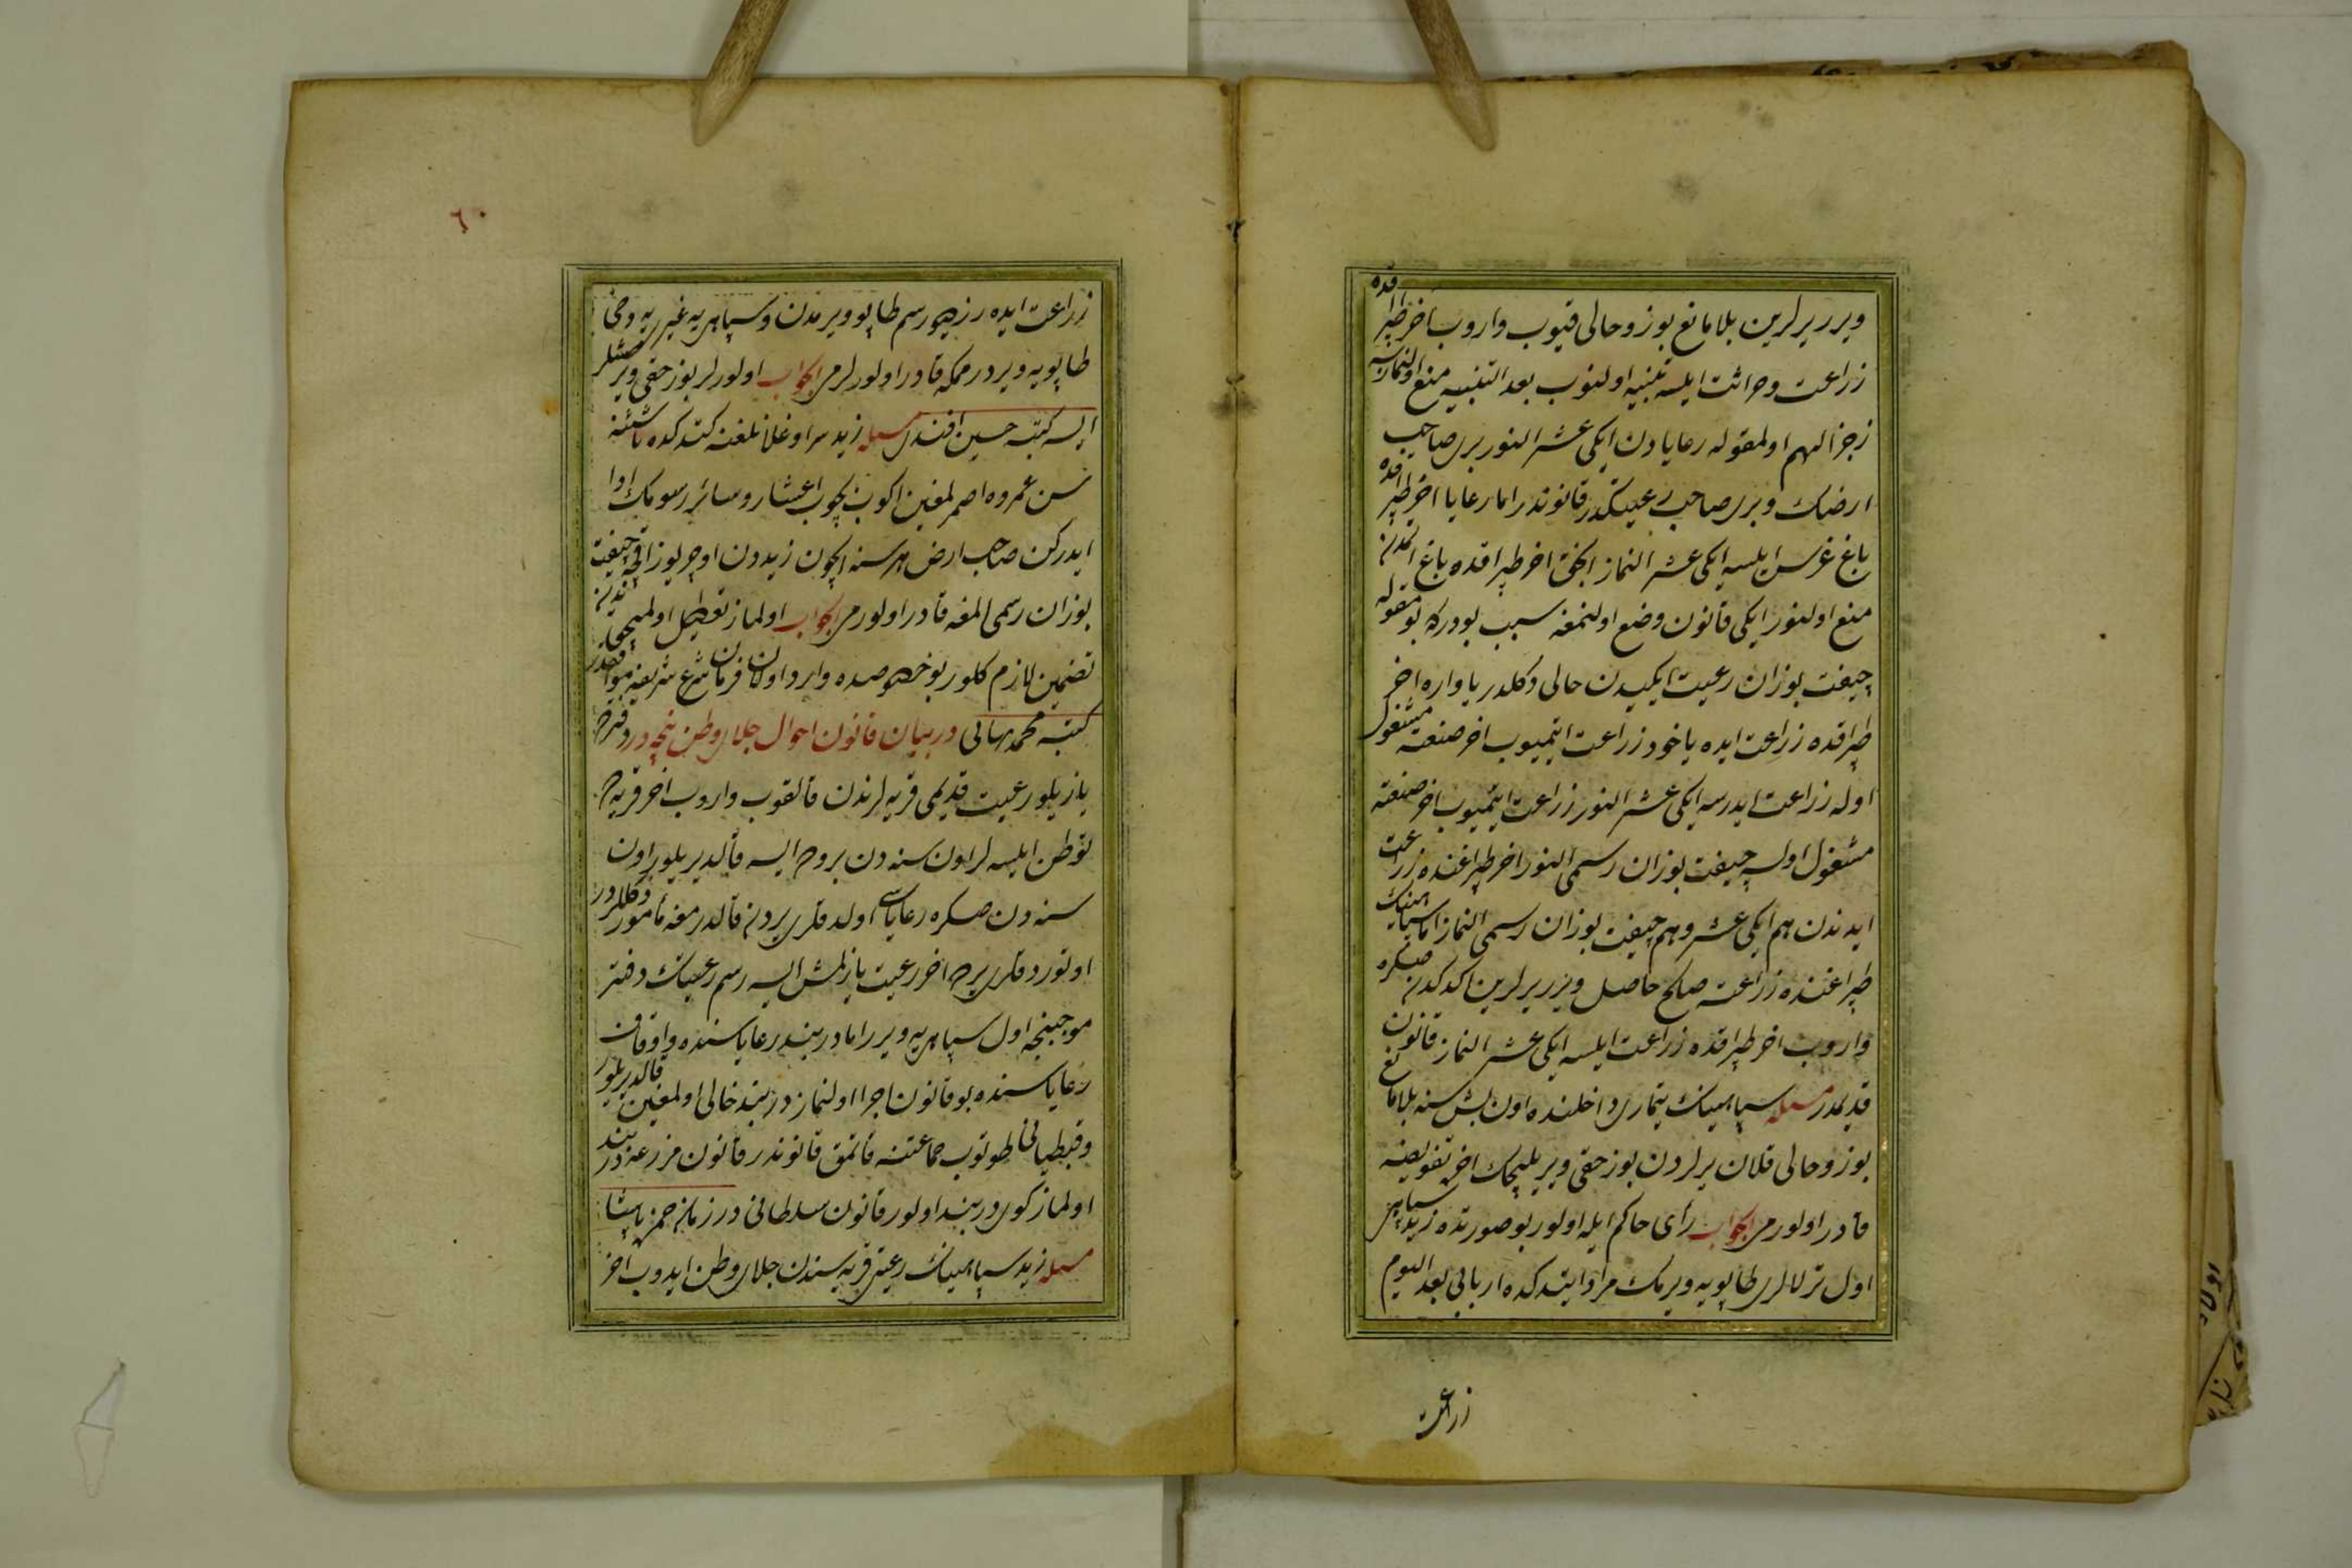 ویرر یرلرین بلا مانع بوز و خالی قیوب واروب اخر طپراقده
زراعت و حراثت ایلسه تنبیه اولنوب بعد التنبیه منع اولنمازسه
زجرا لهم اولمقوله رعایادن ایکی عشر النور بری صاحب
ارضك و بری صاحب رعیتکدر قانوندر اما رعایا اخر طپراقده
باغ غرس ایلسه ایکی عشر النماز انجق اخر طپراقده باغ اتمدن
منع اولنور ایکی قانون وضع اولنمغه سبب بودرکه بو مقوله
چیفت بوزان رعیت ایکیدن خالی دکلدر یا واره اخر
طپراقده زراعت ایده یاخود زراعت ایتمیوب اخر صنعته مشغول
اوله زراعت ایدرسه ایکی عشر النور زراعت ایتمیوب اخر صنعته
مشغول اولسه چیفت بوزان رسمی النور اخر طپراغنده زراعت
ایدندن هم ایکی عشر و هم چیفت بوزان رسمی النماز اما سپاهینك
طپراغنده زراعته صالح حاصل ویرر یرلرین اکدکدن صکره
واروب اخر طپراقده زراعت ایلسه ایکی عشر النماز قانون
قدیمدر مسئله سپاهینك تیماری داخلنده اون بش سنه بلا مانع
بوز و خالی قلان یرلردن بوز حقی ویریلیجك اخره تفویضنه
قادر اولورمی الجواب رأی حاکم ایله اولور بو صورتده زید سپاهی
اول ترلالری طاپویه ویرمك مراد ایتدکده اربابی بعد الیوم
زراعت
٦٠
زراعت ایده رز دیو رسم طاپو ویرمدن و سپاهی یه غیریه دخی
طاپویه ویردرمکه قادر اولورلرمی الجواب اولورلر بوز حقی ویرمشلر
ایسه کتبه حسین افندی مسئله زید سر اوغلانلغنه کتدکده ناشئنه
سن عمروه اصمرلمغین اکوب بچوب اعشار و سائر رسومك ادا
ایدرکن صاحب ارض هر سنه ایچون زیددن اوچر یوز اقچه چیفت
بوزان رسمی المغه قادر اولورمی الجواب اولماز تعطیل اولمیجق
تضمین لازم کلور بو خصوصده وارد اولان فرمان شرع شریفه موافقدر
کتبه محمد بهائی در بیان قانون احوال جلای وطن نیجه در دفترده
یازیلو رعیت قدیمی قریه لرندن قالقوب واروب اخر قریه ده
توطن ایلسه لر اون سنه دن بروده ایسه قالدیریلور اون
سنه دن صکره رعایاسی اولدقلری یردن قالدرمغه مأمور دکللردر
اوتوردقلری یرده اخر رعیت یازلمش ایسه رسم رعیتك دفتر
موجبنجه اول سپاهی یه ویرر اما دربند رعایاسنده و اوقاف
رعایاسنده بو قانون اجرا اولنماز دربند خالی اولمغین قالدیریلور
و قبطیانی طوتوب جماعتنه قاتمق قانوندر قانون مزرعه دربند
اولماز کوی دربند اولور قانون سلطانی در زمان حمزه پاشا
مسئله زید سپاهینك رعیتی قریه سندن جلای وطن ایدوب اخر